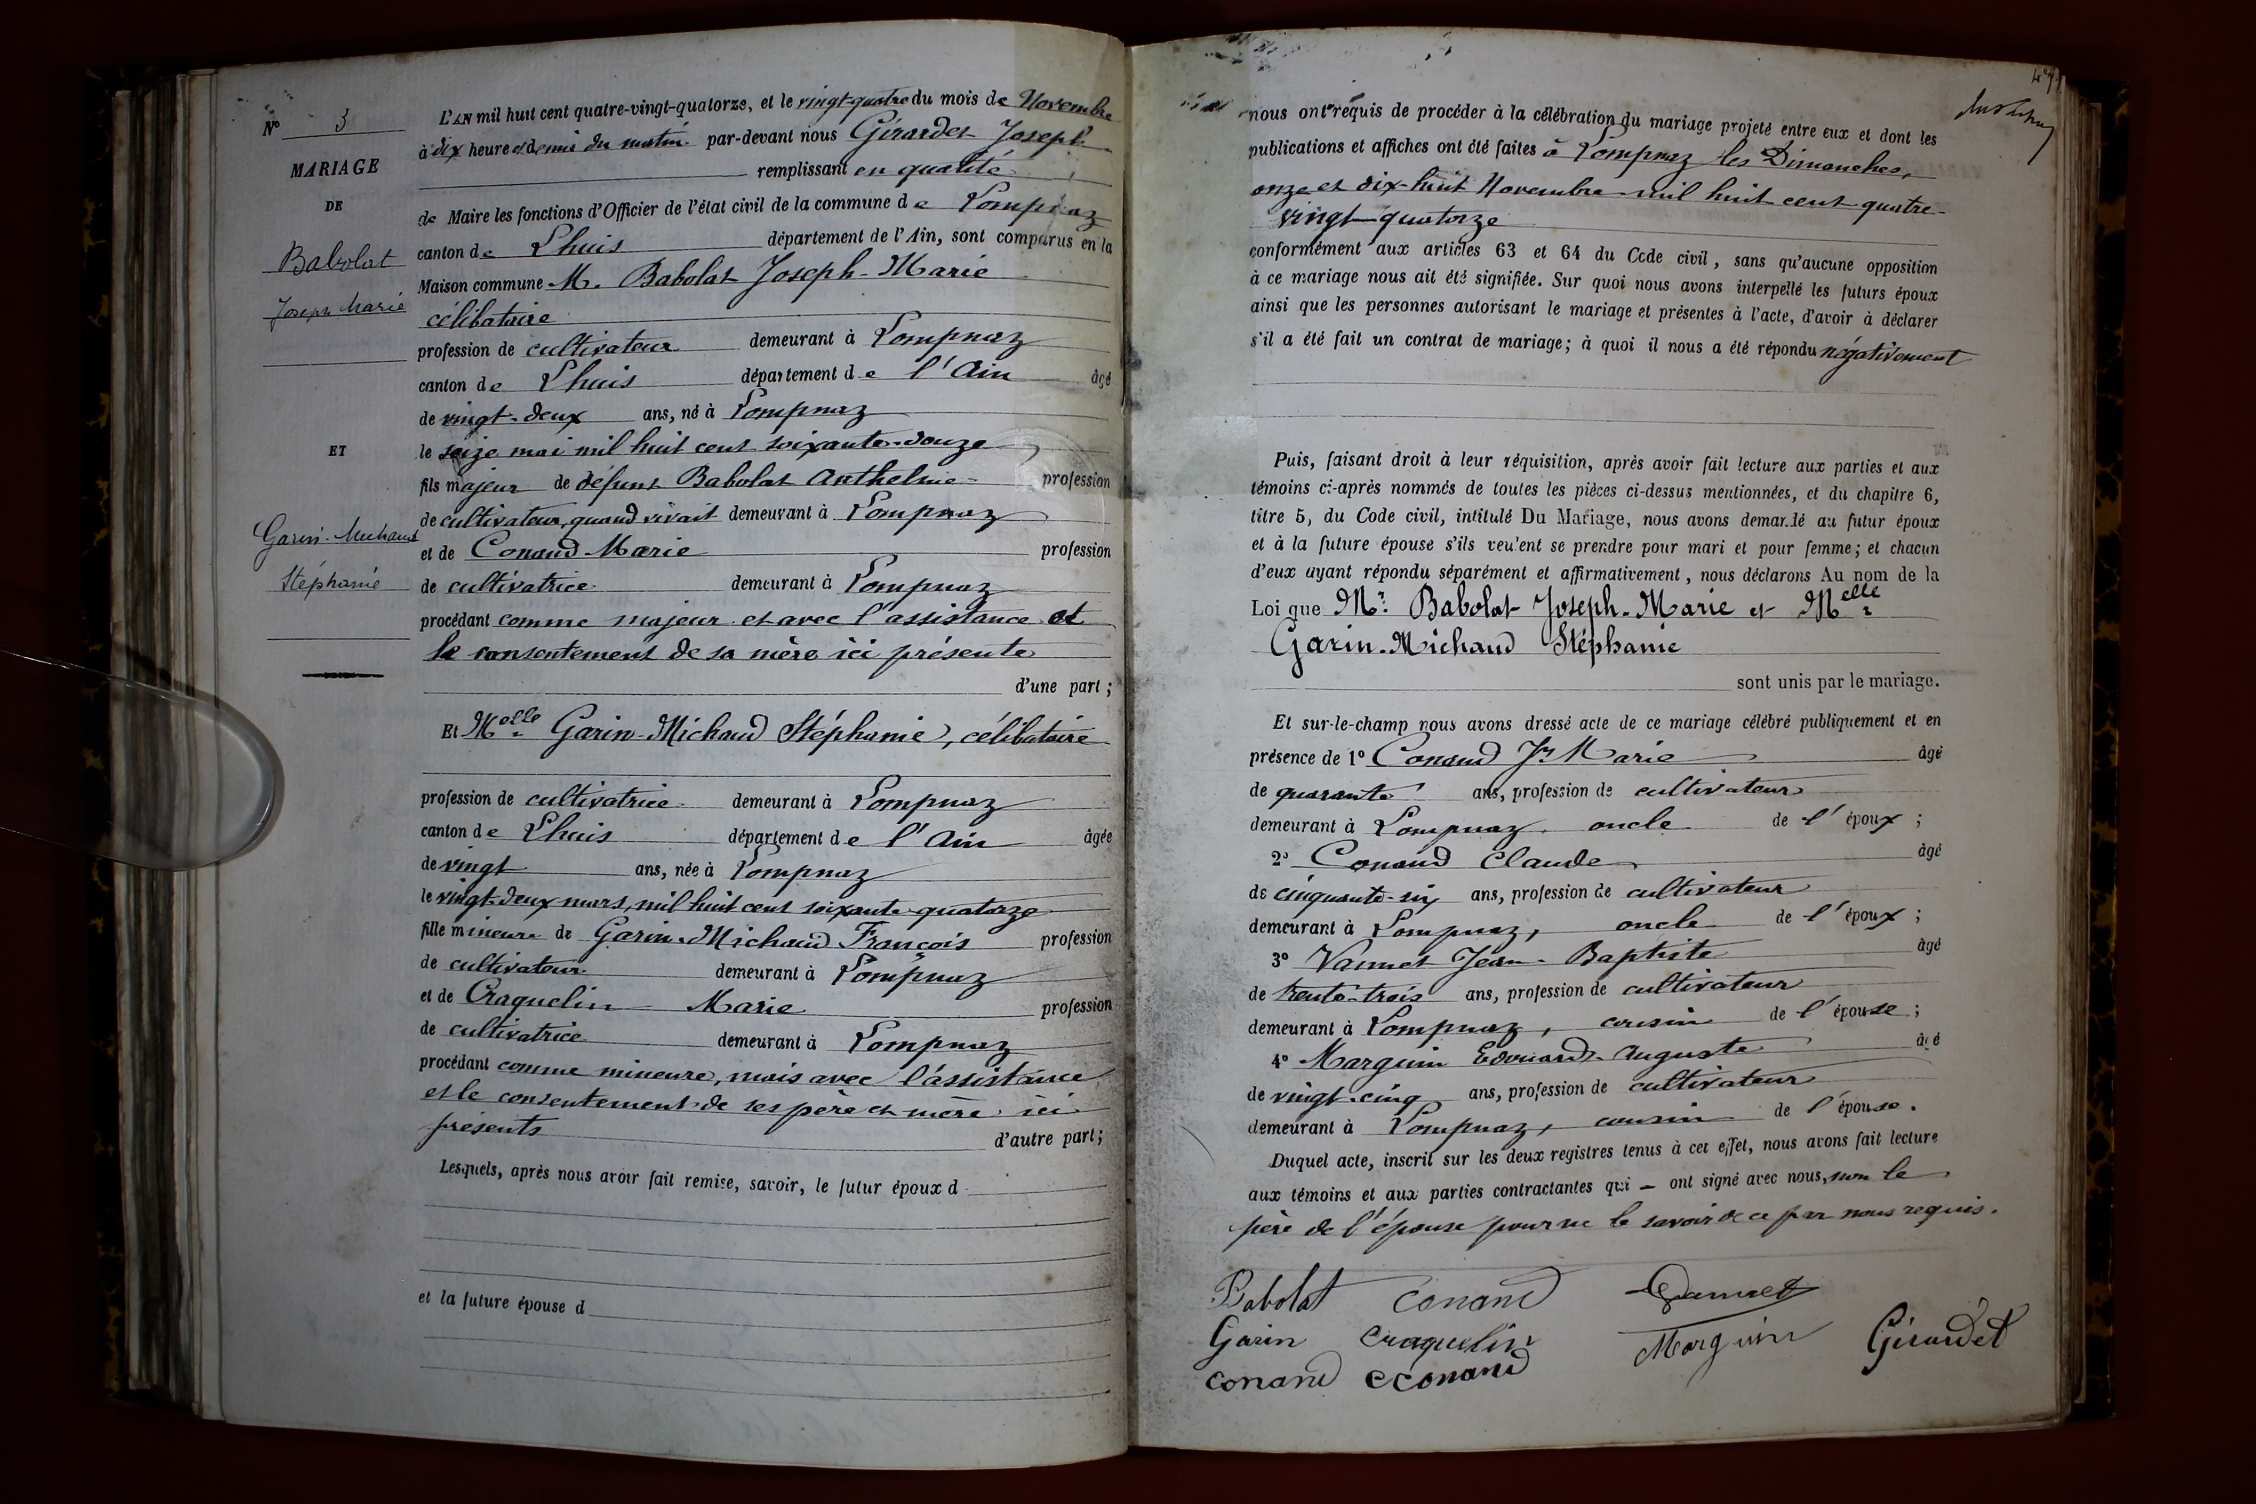 N° 3
MARIAGE
DE
Babolat
Joseph Marie
ET
Garin-Michaud
Stéphanie
L'AN mil huit cent quatre-vingt-quatorze, et le vingt-quatre du mois de Novembre
à dix heure et demie du matin par-devant nous Girardet Joseph
remplissant en qualité
de Maire les fonctions d'Officier de l'état civil de la commune de Lompnaz
canton de Lhuis département de l'Ain, sont comparus en la
Maison commune M. Babolat Joseph-Marie
célibataire
profession de cultivateur demeurant à Lompnaz
canton de Lhuis département de l'Ain âgé
de vingt-deux ans, né à Lompnaz
le seize mai mil huit cent soixante-douze
fils majeur de défunt Babolat Anthelme profession
de cultivateur, quand vivait demeurant à Lompnaz
et de Conand Marie profession
de cultivatrice demeurant à Lompnaz
procédant comme majeur et avec l'assistance et
le consentement de sa mère ici présente
d'une part ;
Et Melle Garin-Michaud Stéphanie, célibataire
profession de cultivatrice demeurant à Lompnaz
canton de Lhuis département de l'Ain âgée
de vingt ans, née à Lompnaz
le vingt-deux mars, mil huit cent soixante-quatorze
fille mineure de Garin-Michaud François profession
de cultivateur demeurant à Lompnaz
et de Craquelin Marie profession
de cultivatrice demeurant à Lompnaz
procédant comme mineure, mais avec l'assistance
et le consentement de ses père et mère ici
présents d'autre part ;
Lesquels, après nous avoir fait remise, savoir, le futur époux d
et la future épouse d
nous ont réquis de procéder à la célébration du mariage projeté entre eux et dont les
publications et affiches ont été faites à Lompnaz les Dimanches,
onze et dix-huit Novembre mil huit cent quatre-
vingt-quatorze
conformément aux articles 63 et 64 du Code civil, sans qu'aucune opposition
à ce mariage nous ait été signifiée. Sur quoi nous avons interpellé les futurs époux
ainsi que les personnes autorisant le mariage et présentes à l'acte, d'avoir à déclarer
s'il a été fait un contrat de mariage ; à quoi il nous a été répondu négativement
Puis, faisant droit à leur réquisition, après avoir fait lecture aux parties et aux
témoins ci-après nommés de toutes les pièces ci-dessus mentionnées, et du chapitre 6,
titre 5, du Code civil, intitulé Du Mariage, nous avons demandé au futur époux
et à la future épouse s'ils veulent se prendre pour mari et pour femme ; et chacun
d'eux ayant répondu séparément et affirmativement, nous déclarons Au nom de la
Loi que Mr. Babolat Joseph-Marie et Melle
Garin-Michaud Stéphanie
sont unis par le mariage.
Et sur-le-champ nous avons dressé acte de ce mariage célébré publiquement et en
présence de 1° Conand Jh Marie âgé
de quarante ans, profession de cultivateur
demeurant à Lompnaz, oncle de l'époux ;
2° Conand Claude âgé
de cinquante-six ans, profession de cultivateur
demeurant à Lompnaz, oncle de l'époux ;
3° Vannet Jean-Baptiste âgé
de trente-trois ans, profession de cultivateur
demeurant à Lompnaz, cousin de l'épouse ;
4° Marguin Edouard-Auguste âgé
de vingt-cinq ans, profession de cultivateur
demeurant à Lompnaz, cousin de l'épouse.
Duquel acte, inscrit sur les deux registres tenus à cet effet, nous avons fait lecture
aux témoins et aux parties contractantes qui – ont signé avec nous, non le
père de l'épouse pour ne le savoir de ce par nous requis.
Babolat Conand Vannet
Garin Craquelin Marguin Girardet
Conand CConand